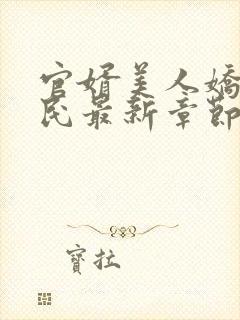 官婿美人嬌
民最新章節
寶拉